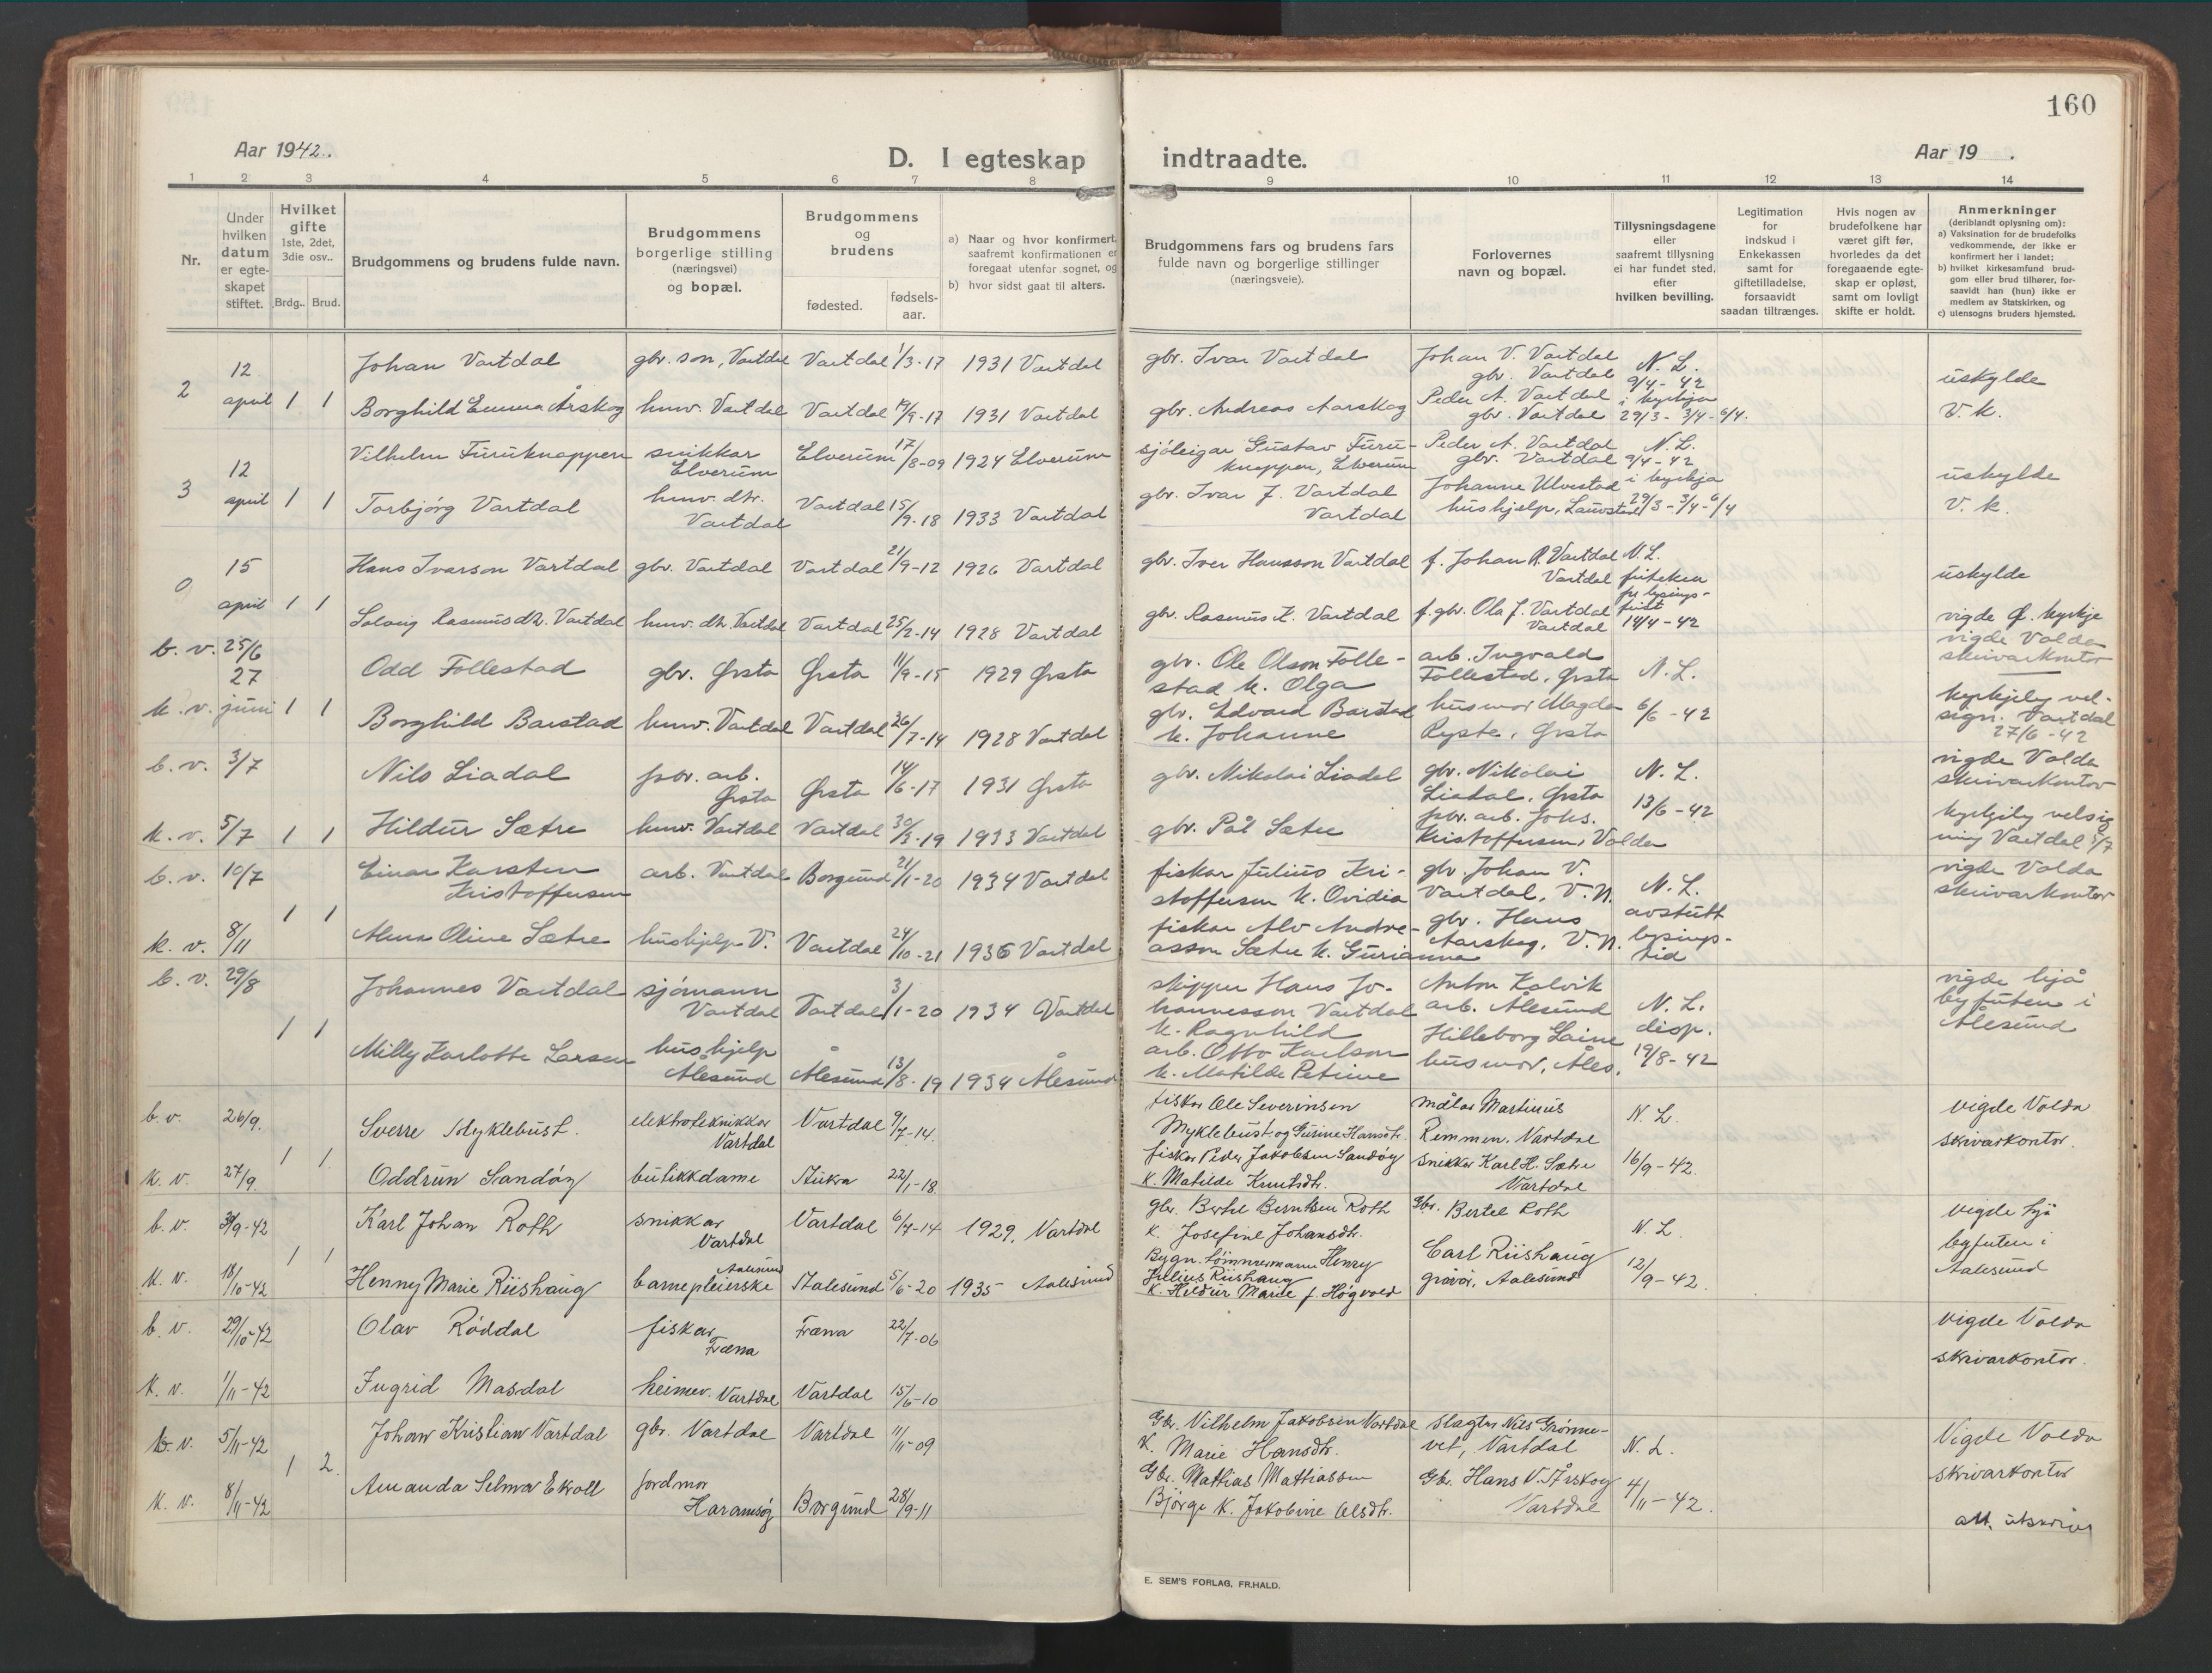 160
Aar 1942.
D. I egteskap indtraadte.
Aar 19 .
1 2 3 4 5 6 7 8 9 10 11 12 13 14
Nr.
Under hvilken datum er egteskapet stiftet.
Hvilket gifte 1ste, 2det, 3die osv..
Brdg.. Brud.
Brudgommens og brudens fulde navn.
Brudgommens borgerlige stilling (næringsvei) og bopæl.
Brudgommens og brudens
fødested.
fødsels-aar.
a) Naar og hvor konfirmert, saafremt konfirmationen er foregaat utenfor sognet, og
b) hvor sidst gaat til alters.
Brudgommens fars og brudens fars fulde navn og borgerlige stillinger (næringsveie).
Forlovernes navn og bopæl.
Tillysningsdagene eller saafremt tillysning ei har fundet sted, efter hvilken bevilling.
Legitimation for indskud i Enkekassen samt for giftetilladelse, forsaavidt saadan tiltrænges.
Hvis nogen av brudefolkene har været gift før, hvorledes da det foregaaende egteskap er opløst, samt om lovligt skifte er holdt.
Anmerkninger (deriblandt oplysning om):
a) Vaksination for de brudefolks vedkommende, der ikke er konfirmert her i landet;
b) hvilket kirkesamfund brudgom eller brud tilhører, forsaavidt han (hun) ikke er medlem av Statskirken, og
c) utensogns bruders hjemsted.
2 12 april 1 1
Johan Vartdal gbr. son, Vartdal Vartdal 1/3-17 1931 Vartdal gbr. Ivar Vartdal Johan V. Vartdal gbr. Vartdal N. L. 9/4-42 uskylde
Borghild Emma Årskog huv. Vartdal Vartdal 19/9-17 1931 Vartdal gbr. Andreas Aarskog Peder A. Vartdal gbr. Vartdal i kyrkja 29/3 - 3/4 - 6/4. V. k.
3 12 april 1 1
Vilhelm Furuknappen snikkar Elverum Elverum 17/8-09 1924 Elverum sjöleigar Gustav Furuknappen, Elverum Peder A. Vartdal gbr. Vartdal N. L. 9/4-42 uskylde
Torbjørg Vartdal huv. dtr. Vartdal Vartdal 15/9-18 1933 Vartdal gbr. Ivar J. Vartdal Vartdal Johanne Ulvestad hushjelp, i kyrkja 29/3 - 3/4 - 6/4 V. k.
0 15 april 1 1
Hans Ivarson Vartdal gbr. Vartdal Vartdal 21/9-12 1926 Vartdal gbr. Iver Hansson Vartdal f. Johan R. Vartdal Vartdal N. L. friteken fr lysings-frist 14/4-42 uskylde
Solveig Rasmusdtr. Vartdal huv. dtr. Vartdal Vartdal 25/2-14 1928 Vartdal gbr. Rasmus K. Vartdal f. gbr. Ola J. Vartdal Vartdal vigde Ø. kyrkje
b. v. 25/6
k. v. 27 juni 1 1
Odd Follestad gbr. Ørsta Ørsta 11/9-15 1929 Ørsta gbr. Ole Olson Follestad k. Olga arb. Ingvald Follestad, Ørsta N. L. vigde Volda skrivarkontor
Borghild Barstad huv. Vartdal Vartdal 26/7-14 1928 Vartdal gbr. Edvard Barstad k. Johanne husmor Magda Ryste, Ørsta 6/6-42 kyrkjely velsign. Vartdal 27/6-42
b. v. 3/7
k. v. 5/7 1 1
Nils Liadal fabr. arb. Ørsta Ørsta 14/6-17 1931 Ørsta gbr. Nikolai Liadal gbr. Nikolai Liadal, Ørsta N. L. 13/6-42 vigde Volda skrivarkontor
Hildur Sætre huv. Vartdal Vartdal 30/3-19 1933 Vartdal gbr. Pål Sætre fabr. arb. Johs. Kristoffersen, Volda kyrkjely velsigning Vartdal 5/7
b. v. 10/7
k. v. 8/11 1 1
Einar Karsten Kristoffersen arb. Vartdal Borgund 21/1-20 1934 Vartdal fiskar Julius Kristoffersen k. Ovidia gbr. Johan V. Vartdal, V. N. N. L. avstutt lysings-tid vigde Volda skrivarkontor
Alma Oline Sætre hushjelp V. Vartdal 24/10-21 1936 Vartdal fiskar Alv Andreasson Sætre k. Gurianna gbr. Hans Aarskog, V. N.
b. v. 29/8 1 1
Johannes Vartdal sjømann Vartdal Vartdal 3/1-20 1934 Vartdal skipper Hans Johannesson Vartdal k. Ragnhild Anton Kalvik arb. Ålesund N. L. disp. 19/8-42 vigde hjå byfuten i Ålesund
Milly Karlotte Larsen hushjelp Ålesund Ålesund 13/8-19 1934 Ålesund arb. Otto Karlson k. Matilde Petrine Hilleborg Laine husmor, Åles.
b. v. 26/9.
k. v. 27/9. 1 1.
Sverre Myklebust. elektroteknikkar Vartdal Vartdal 9/7-14. fiskar Ole Severinsen Myklebust og Gurine Hansdtr. målar Martinus Remmen. Vartdal N. L. 16/9-42. vigde Volda skrivarkontor.
Oddrun Sandøy butikkdame Aukra 22/1-18 fiskar Peder Jakobsen Sandøy k. Matilde Knutsdtr. snikkar Karl H. Sætre Vartdal
b. v. 30/9-42
k. v. 18/10-42 1 1
Karl Johan Roth snikkar Vartdal Vartdal 6/7-14 1929, Vartdal gbr. Bertel Berntsen Roth k. Josefine Johansdtr. gbr. Bertel Roth N. L. 12/9-42. vigde hjå byfuten i Aalesund
Henny Marie Riishaug barnepleierske Aalesund Aalesund 5/6-20 1935 Aalesund Bygn. tømmermann Henry Julius Riishaug k. Hildur Marie f. Høgvold Carl Riishaug gravør, Aalesund
b. v. 29/10-42
k. v. 1/11-42
Olav Røddal fiskar Fræna Fræna 22/7-06 vigde Volda skrivarkontor.
Ingrid Masdal heimev. Vartdal Vartdal 15/6-10
b. v. 5/11-42
k. v. 8/11-42 1 2.
Johan Kristian Vartdal gbr. Vartdal Vartdal 11/11-09 Gbr. Vilhelm Jakobsen Vartdal k. Marie Hansdtr. slagtar Nils Grønnevet, Vartdal N. L. 4/11-42. Vigde Volda skrivarkontor
Amanda Selma Ekroll jordmor Haramsøy Borgund 28/9-11 Gbr. Mathias Mathiassen Bjørge k. Jakobine Olsdtr. Gbr. Hans V. Årskog Vartdal att. utskriv
E. SEM'S FORLAG, FR.HALD.